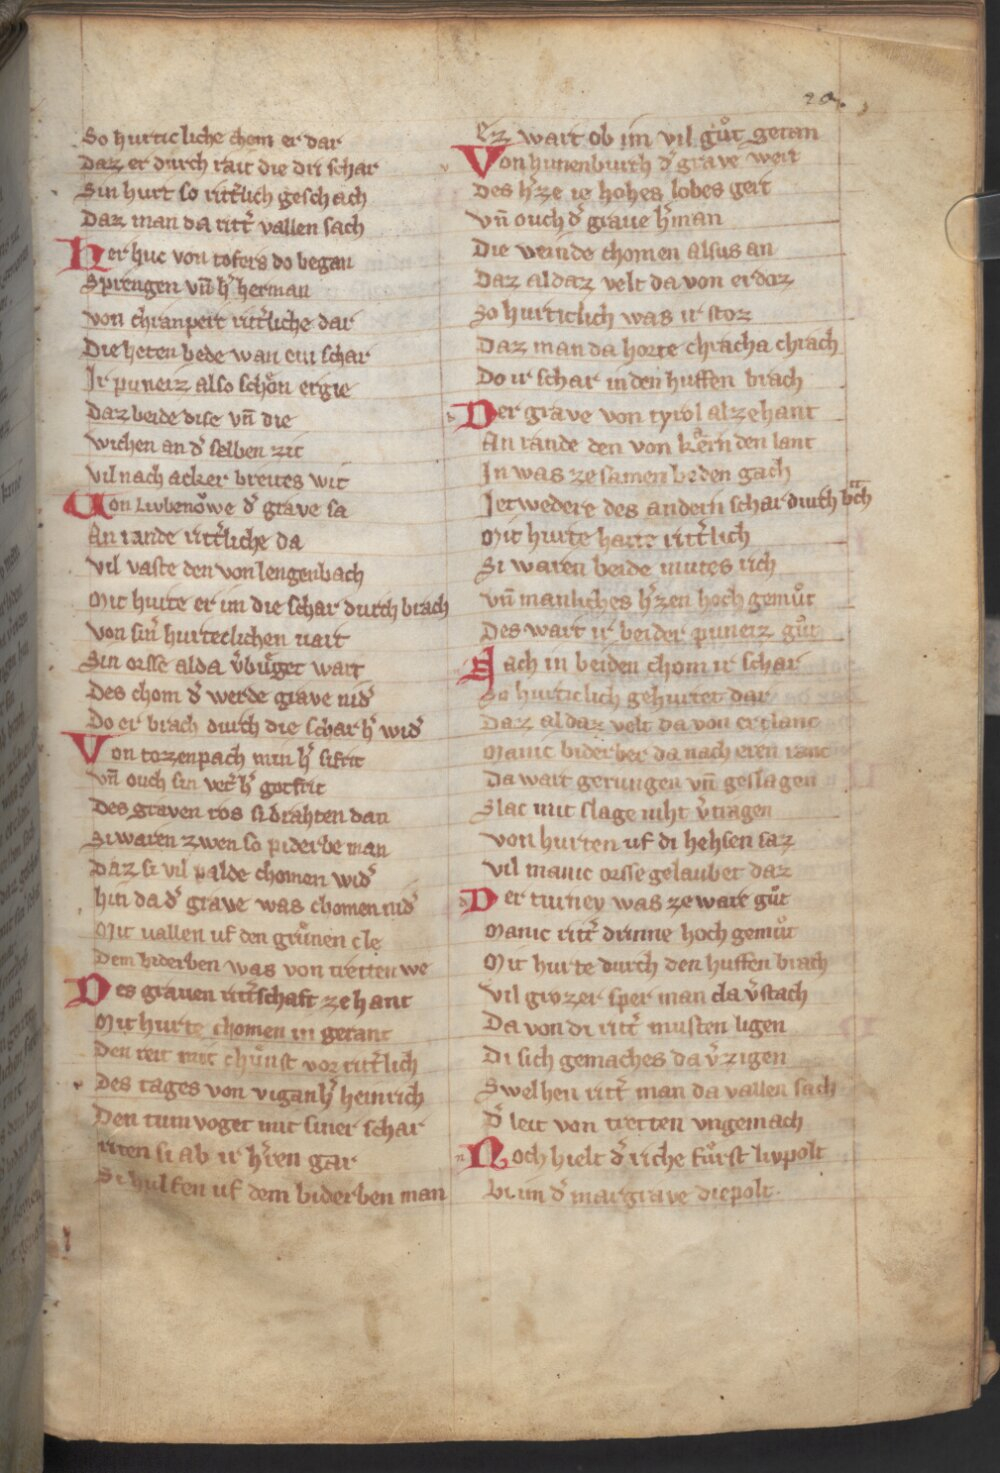 20.
So hurticliche chom er dar
Daz er durch rait die dri schar
Sin hurt so ritt̾lich geschach
Daz man da ritt̾ vallen sach
Her huc von tofers do began
Sprengen vn̄ h̾ herman
von chranpert ritt̾liche dar
Die heten bede wan ein schar
Ir puneiz also schon ergie
Daz beide dise vn̄ die
wichen an d̾ selben zit
vil nach acker breites wit
Von Liubenowe d̾ grave sa
An rande ritt̾liche da
vil vaste den von lengenbach
Mit hurte er im die schar durch brach
Von sin̾ hurteclichen vart
Sin orsse alda v̾buͤget wart
Des chom d̾ werde grave nid̾
Do er brach durch die schar h̾ wid̾
Von tozenpach min h̾ sifrit
vn̄ ouch sin vet̾ h̾ gotfrit
Des graven ros si drahten dan
Si waren zwen so piderbe man
Daz si vil palde chomen wid̾
hin da d̾ grave was chomen nid̾
Mit vallen uf den gruͦnen cle
Dem biderben was von tretten we
Des graven ritt̾schaft ze hant
Mit hurte chomen in gerant
Den reit mit chuͦnst vor ritt̾lich
Des tages von vigan h̾ heinrich
Den tum voget mit siner schar
riten si ab ir h̾ren gar
Si hulfen uf dem biderben man
Ez wart ob im vil guͦt getan
Von hunenburch d̾ grave wert
Des h̾ze ie hohes lobes gert
Vn̄ ouch d̾ graue h̾man
Die veinde chomen alsus an
Daz al daz velt da von erdoz
So hurticlich was ir stoz
Daz man da horte chracha chrach
Do ir schar in den huffen brach
Der grave von tyrol alzehant
An rande den von kaͤrnden lant
In was ze samen beden gach
Jetwedere des andern schar durch b̄ch
Mit hurte harte ritt̾lich
Si waren beide mutes rich
vn̄ manliches h̾zen hoch gemuͦt
Des wart ir beider puneiz guͦt
Nach in beiden chom ir schar
So hurticlich gehurtet dar
Daz al daz velt da von erclanc
Manic biderber da nach eren ranc
Da wart gerungen vn̄ geslagen
Slac mit slage niht v̾tragen
von hurten uf di hehsen saz
vil manic orsse gelaubet daz
Der turney was zeware guͦt
Manic ritt̾ drinne hoch gemuͦt
Mit hurte durch den huffen brach
Vil grozer sper man da v̾stach
Da von di ritt̾ musten ligen
Di sich gemaches da v̾zigen
Swelhen ritt̾ man da vallen sach
D̾ leit von tretten vngemach
Noch hielt d̾ riche fuͦrst livpolt
bi im d̾ margrave diepolt